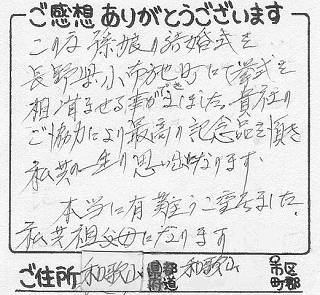 ご感想 ありがとうございます
この度 孫娘の結婚式を
長野県小布施町にて挙式を
相済ませる事ができました。貴社の
ご協力により最高の記念品を頂き
私共の一生の思い出になります。
本当に有難うございました。
私共祖父母になります
ご住所 和歌山 都道府県 和歌山 市区町郡